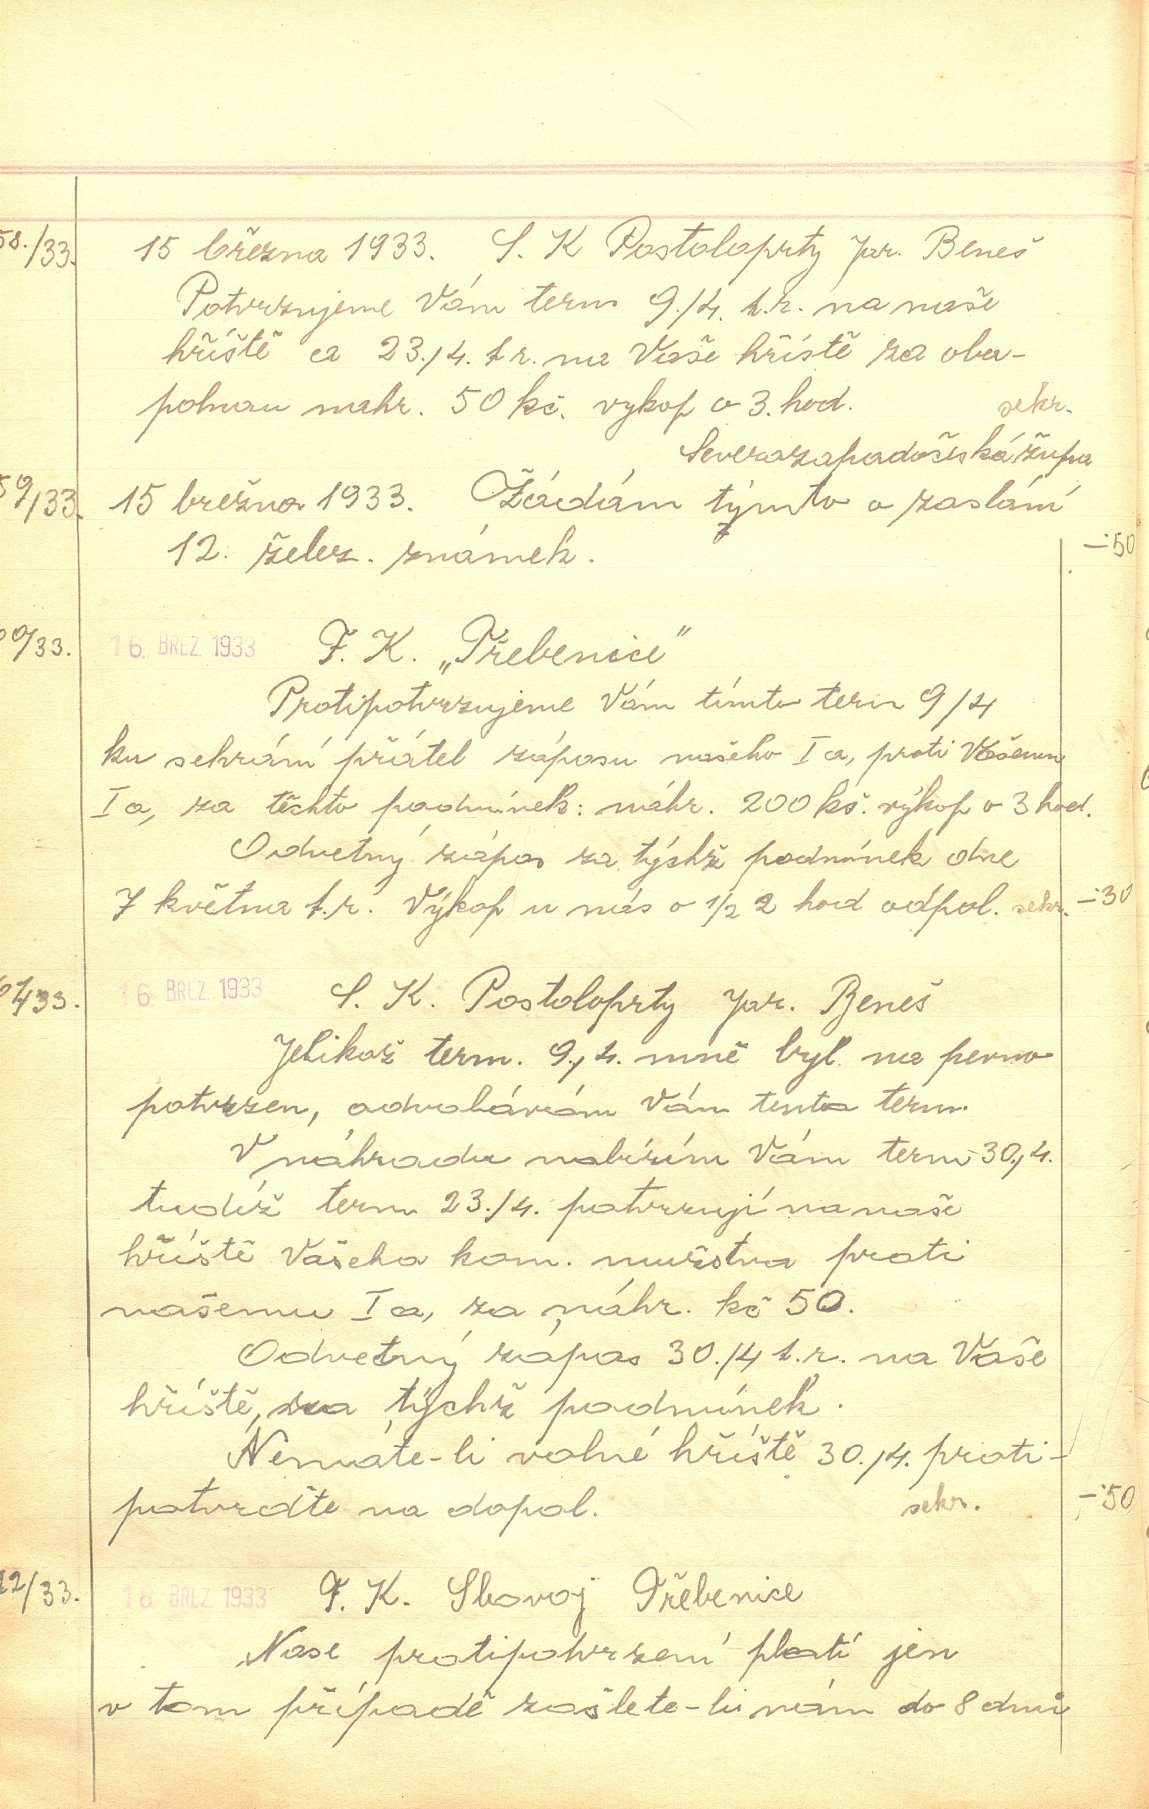 58./33. 15 března 1933. S. K Postoloprty Jar. Beneš
Potvrzujeme Vám term 9./4. t.r. na naše
hřiště a 23./4. t.r. na Vaše hřiště za oba-
polnou nahr. 50 kč. vykop o 3. hod. sekr.
Severozapadočeská župa
59/33. 15 března 1933. Žádám týmto o zaslání
12. želez. známek. -50
60/33. 16. BŘEZ. 1933 F. K. „Třebenice"
Protipotvrzujeme Vám tímto term 9/4
ku sehrání přátel zápasu našeho Ia, proti Vašemu
Ia, za těchto podmínek: náhr. 200 kč. výkop o 3 hod.
Odvetný zápas za týchž podmínek dne
7 května t.r. Výkop u nás o 1/2 2 hod odpol. sekr. -30
61/33. 16. BŘEZ. 1933 S. K. Postoloprty Jar. Beneš
Jelikož term. 9./4. mně byl na pevno
potvrzen, odvolávám Vám tento term.
V náhradu nabízím Vám term 30./4.
tudíž term 23./4. potvrzuji na naše
hřiště Vašeho kom. mužstva proti
našemu Ia, za náhr. kč 50.
Odvetný zápas 30./4 t.r. na Vaše
hříště, za týchž podmínek.
Nemáte-li volné hříště 30./4. proti-
potvrďte na dopol. sekr. -50
62/33. 16 BŘEZ. 1933 F. K. Slavoj Třebenice
Nase protipotvrzení platí jen
v tom případě zašlete-li nám do 8 dnů